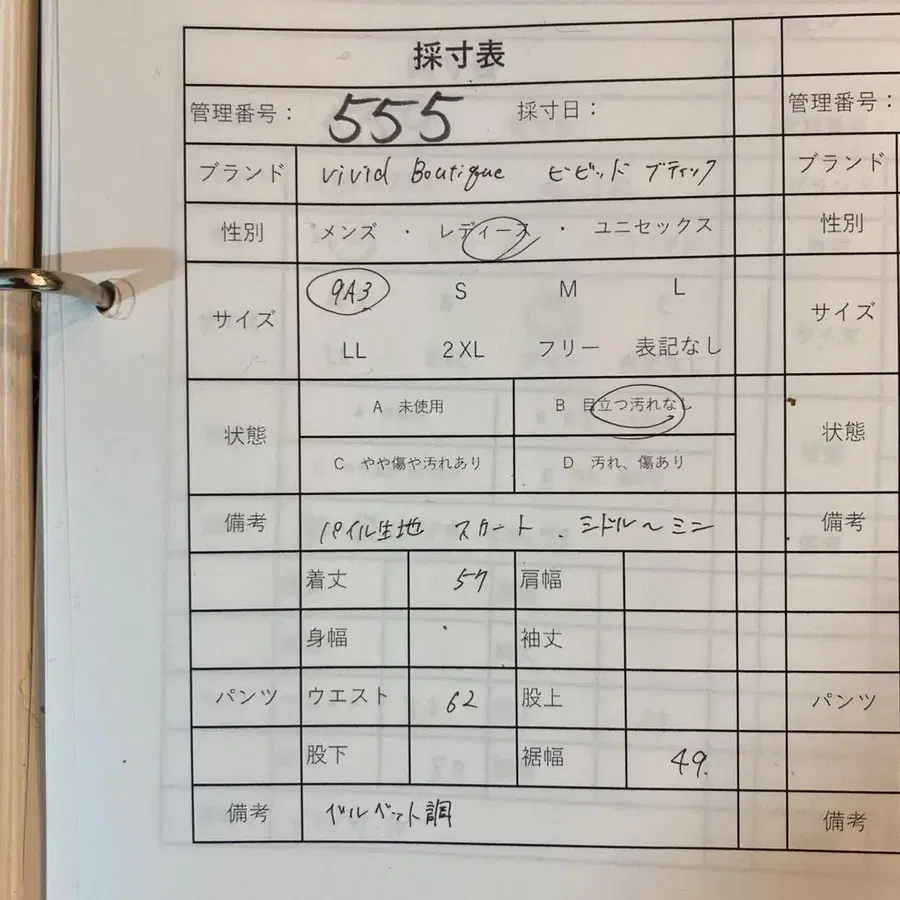 採寸表
管理番号： 555 採寸日：
ブランド vivid Boutique ビビッド ブティック
性別 メンズ ・ レディース ・ ユニセックス
サイズ 9A3 S M L
LL 2XL フリー 表記なし
状態 A 未使用 B 目立つ汚れなし
C やや傷や汚れあり D 汚れ、傷あり
備考 パイル生地 スカート . ミドル〜ミニ
着丈 57 肩幅
身幅 袖丈
パンツ ウエスト 62 股上
股下 裾幅 49.
備考 ベルベット調
管理番号：
ブランド
性別
サイズ
状態
備考
パンツ
備考